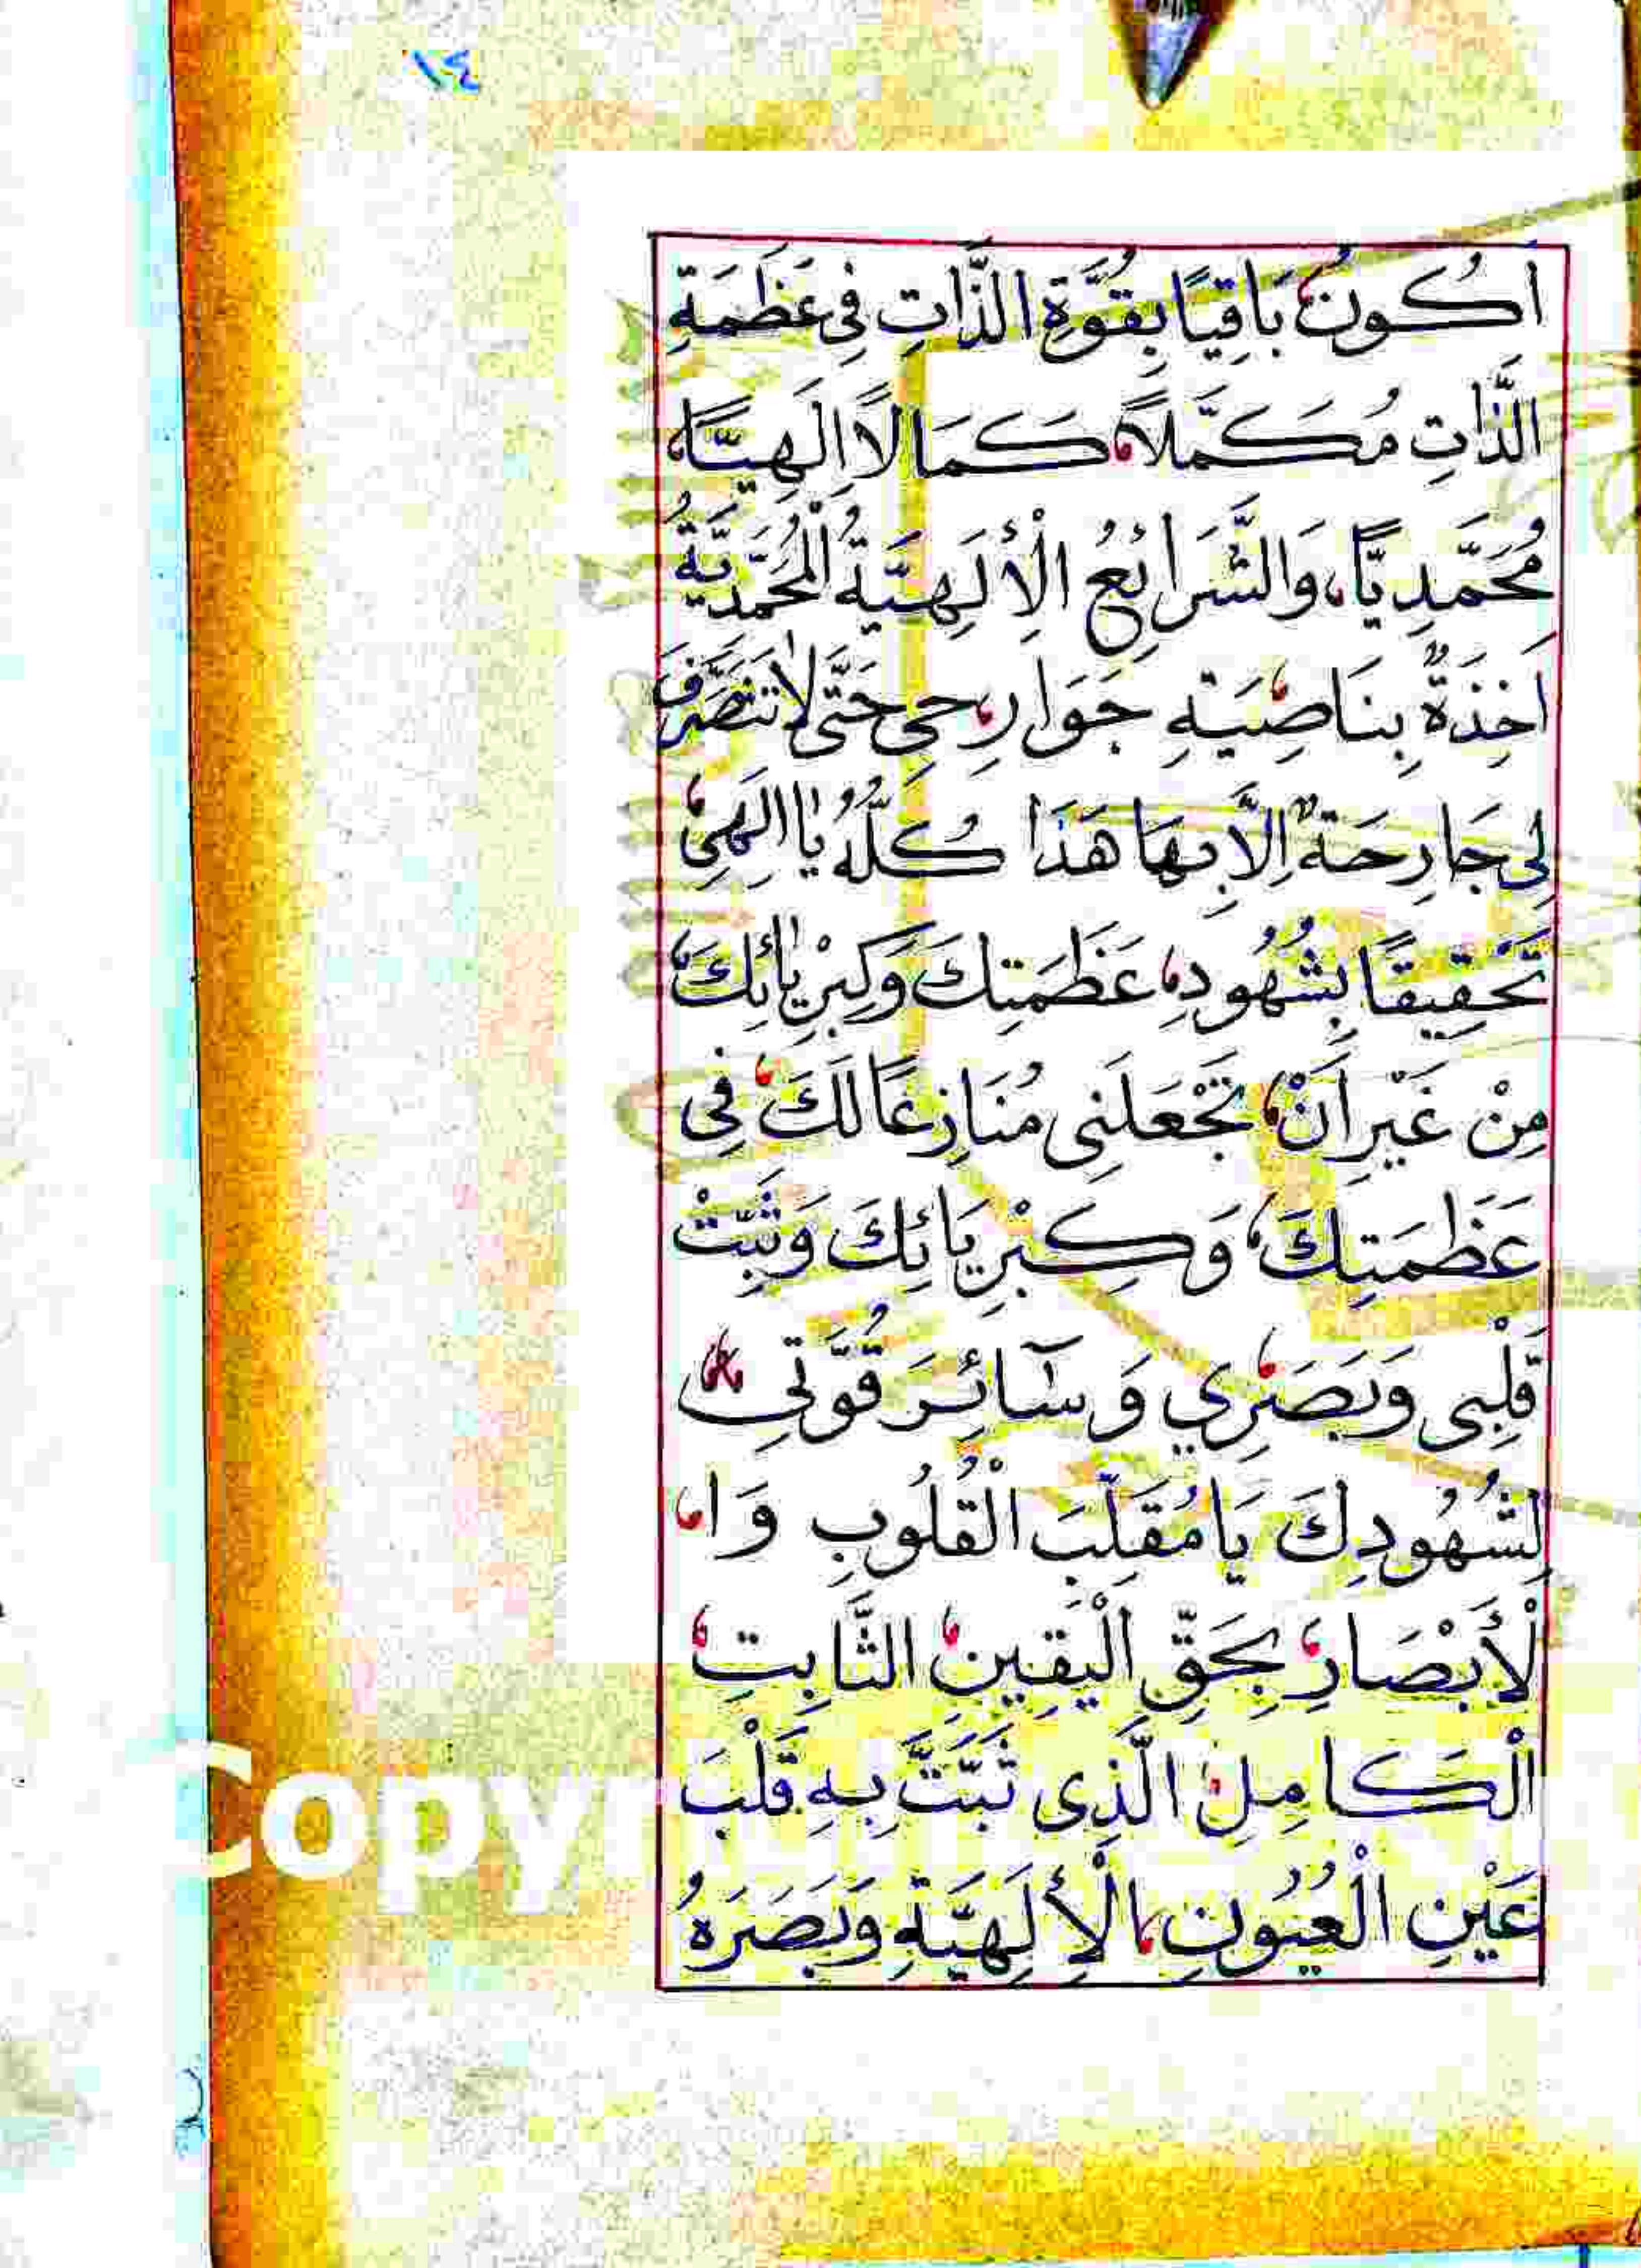 ١٤
اَكُونُ بَاقِيًا بِقُوَّةِ الذَّاتِ فِى عَظَمَةِ
الذَّاتِ مُكَمَّلاً، كَمَالاً اِلَهِيًّا،
مُحَمَّدِيًّا، وَالشَّرَائِعُ الْاِلَهِيَّةُ الْمُحَمَّدِيَّةُ
اَخِذَةٌ بِنَاصِيَةِ جَوَارِحِي حَتَّى لَا تَتَصَرَّفَ
لِى جَارِحَةٌ اِلَّا بِهَا هَذَا كُلُّهُ يَا اِلَهِى
تَحْقِيقًا بِشُهُودِ، عَظَمَتِكَ وَكِبْرِيَائِكَ،
مِنْ غَيْرِ اَنْ، تَجْعَلَنِى مُنَازِعًا لَكَ، فِى
عَظَمَتِكَ، وَكِبْرِيَائِكَ وَثَبِّتْ
قَلْبِى وَبَصَرِي وَسَآئِرَ قُوَّتِى
لِشُهُودِكَ يَا مُقَلِّبَ الْقُلُوبِ وَا
لْأَبْصَارِ، بِحَقِّ الْيَقِينِ، الثَّابِتِ،
الْكَامِلِ الَّذِى ثَبَّتَّ بِهِ قَلْبَ
عَيْنِ الْعُيُونِ، الْإِلَهِيَّةِ وَبَصَرَهُ
Copyr